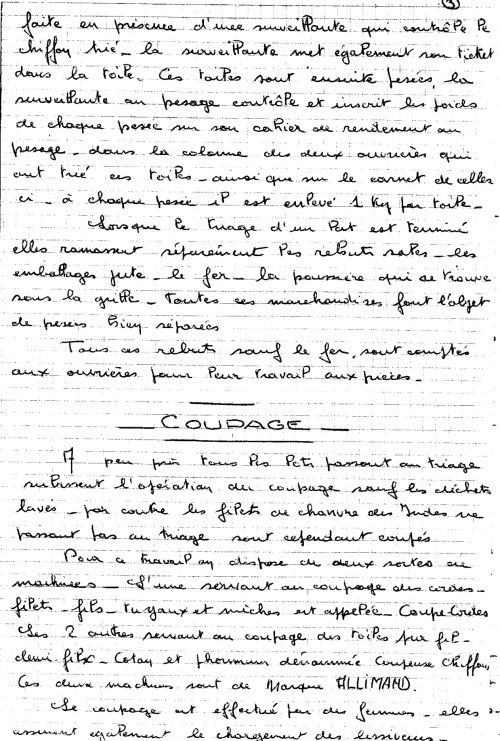 3
faite en présence d'une surveillante qui contrôle le
chiffon trié - la surveillante met également son ticket
dans la toile. Ces toiles sont ensuite pesées, la
surveillante au pesage contrôle et inscrit les poids
de chaque pesée sur son cahier de rendement au
pesage - dans la colonne des deux ouvrières qui
ont trié ces toiles - ainsi que sur le carnet de celles
ci - à chaque pesée il est enlevé 1 kg par toile -
Lorsque le triage d'un lot est terminé
elles ramassent séparément les rebuts sales - les
emballages jute - le fer - la poussière qui se trouve
sous la grille - Toutes ces marchandises font l'objet
de pesées bien séparées
Tous ces rebuts sauf le fer, sont comptés
aux ouvrières pour leur travail aux pièces -
— COUPAGE —
A peu près tous les lots passant au triage
subissent l'opération du coupage sauf les déchets
lavés - par contre les filets de chanvre des Indes ne
passant pas au triage sont cependant coupés
Pour ce travail on dispose de deux sortes de
machines - L'une servant au coupage des cordes -
filets - fils - tuyaux et mèches est appelée - Coupe-Cordes
Les 2 autres servant au coupage des toiles pur fil -
demi fils - Coton et dénommée Coupeuse Chiffons
Ces deux machines sont de Marque ALLIMAND.
Le coupage est effectué par des femmes - elles
assurent également le chargement des lessiveurs -